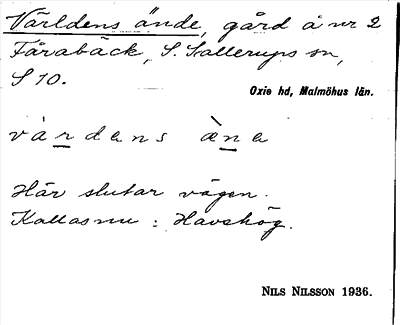 Världens ände, gård å nr 2
Fårabäck, S. Sallerups sn,
S 10.
Oxie hd, Malmöhus län.
värdens ène
Här slutar vägen.
Kallas nu : Havshög.
NILS NILSSON 1936.